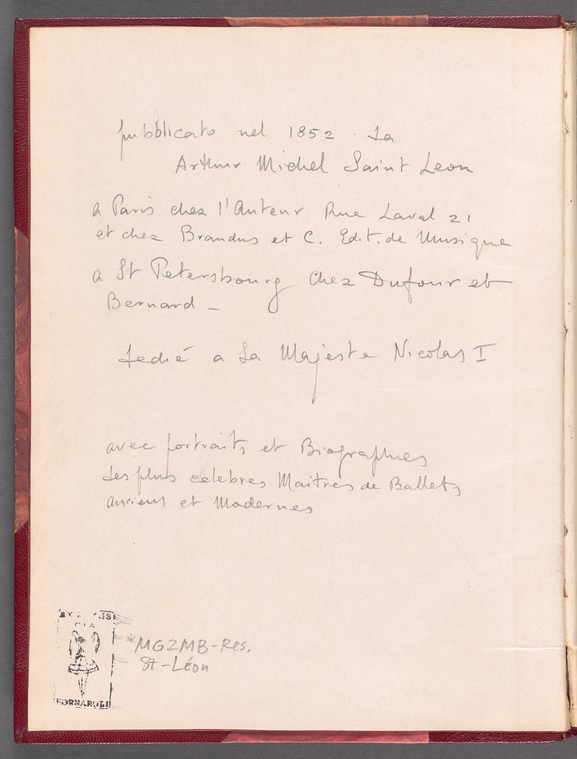 pubblicato nel 1852. Da
Arthur Michel Saint Leon
a Paris chez l'Auteur Rue Laval 21
et chez Brandus et C. Edit. de Musique
a St Petersbourg chez Dufour et
Bernard —
dedié a Sa Majeste Nicolas I
avec portraits et Biographies
des plus celebres Maitres de Ballets
anciens et Modernes
FORNAROLI
*MGZMB-Res.
St-Léon